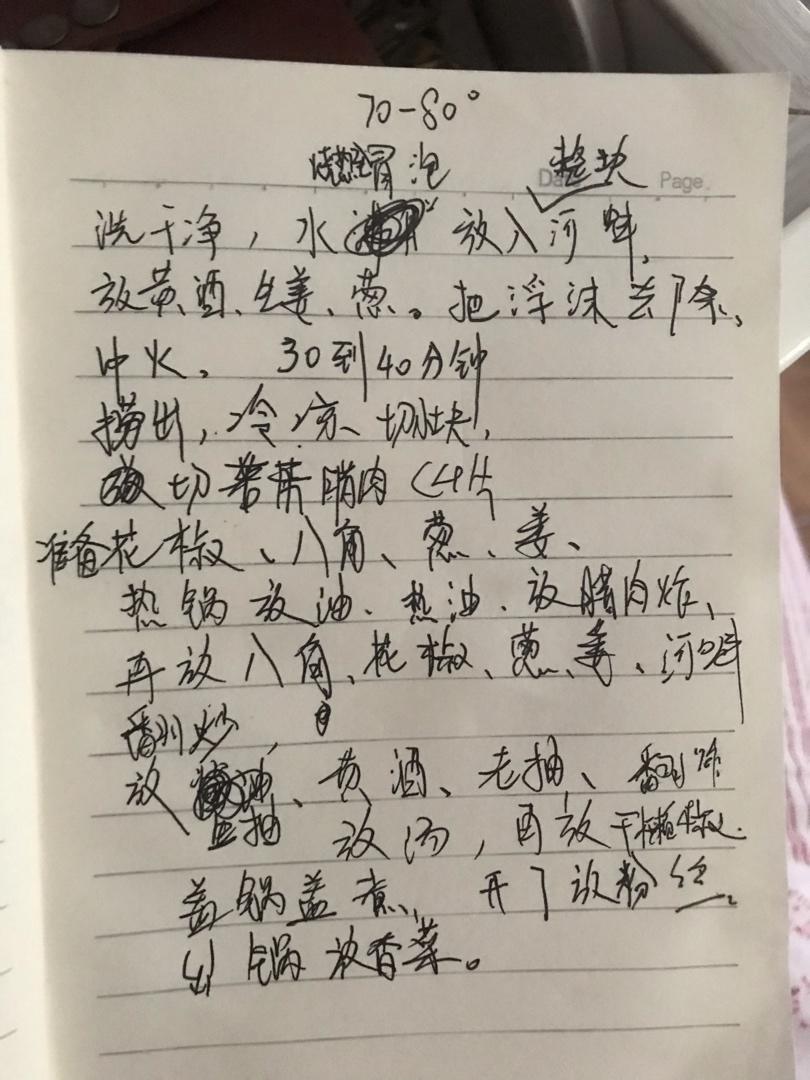 70-80°
冒泡 整块
Date Page
洗干净,水 放入河蚌,
放黄酒、生姜、葱。把浮沫去除、
中火。 30到40分钟
捞出,冷凉、切块,
切 腊肉
准备花椒、八角、葱、姜、
热锅放油、热油、放腊肉炸、
再放八角、花椒、葱、姜、河蚌
翻炒,
放 、黄酒、老抽、翻炸
生抽 放汤,再放干辣椒.
盖锅盖煮, 开了放粉丝。
出锅放香菜。